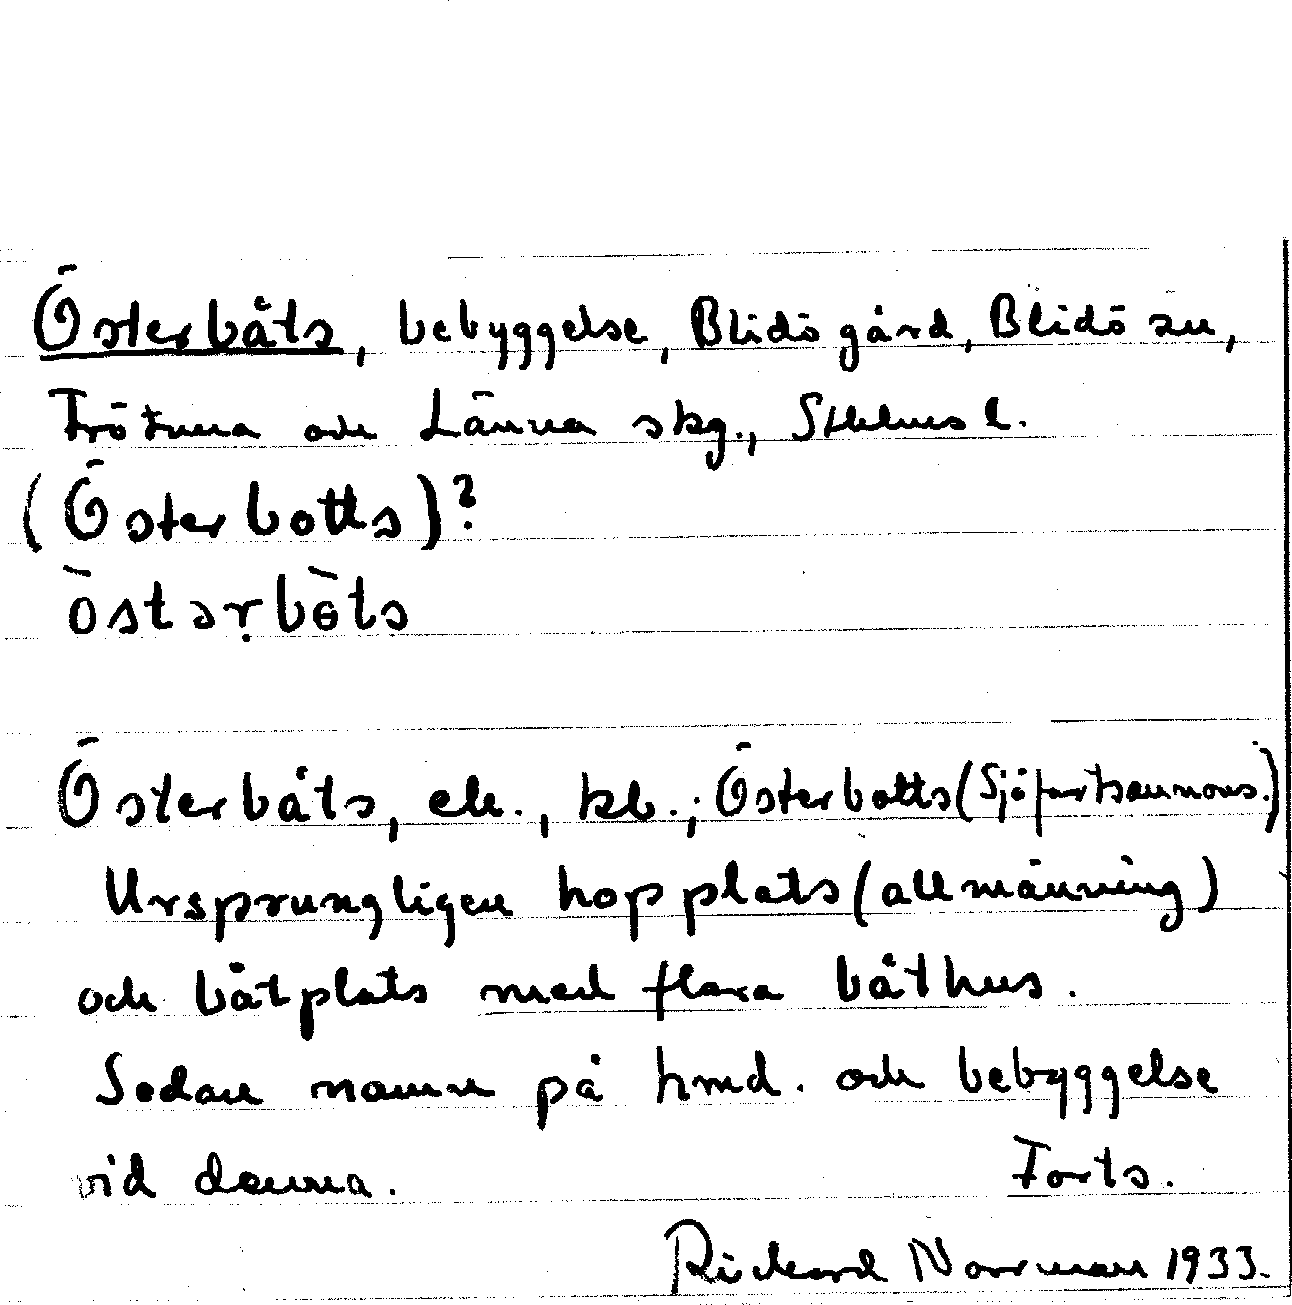 Österbåts, bebyggelse, Blidö gård, Blidö sn,
Frötuna och Länna skg., Sthlms l.
(Österbotts)?
Österbåts, ek., kb.; Österbotts (Sjöfartsannons.)
Ursprungligen hopplats (allmänning)
och båtplats med flera båthus.
Sedan namn på hmd. och bebyggelse
vid denna. Forts.
Rickard Norrman 1933.